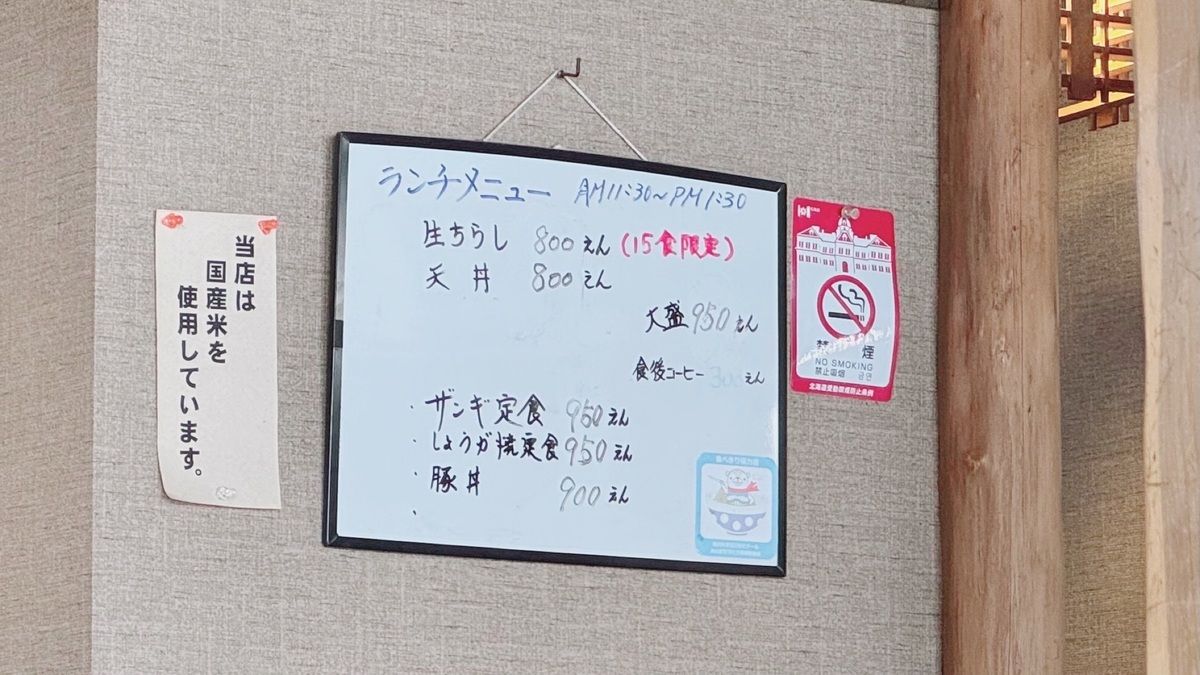 当店は
国産米を
使用しています。
ランチメニュー AM11:30～PM1:30
生ちらし 800えん (15食限定)
天丼 800えん
大盛950えん
食後コーヒー 300えん
・ザンギ定食 950えん
・しょうが焼定食950えん
・豚丼 900えん
・
食べきり協力店
禁煙
NO SMOKING
禁止吸烟 금연
北海道受動喫煙防止条例